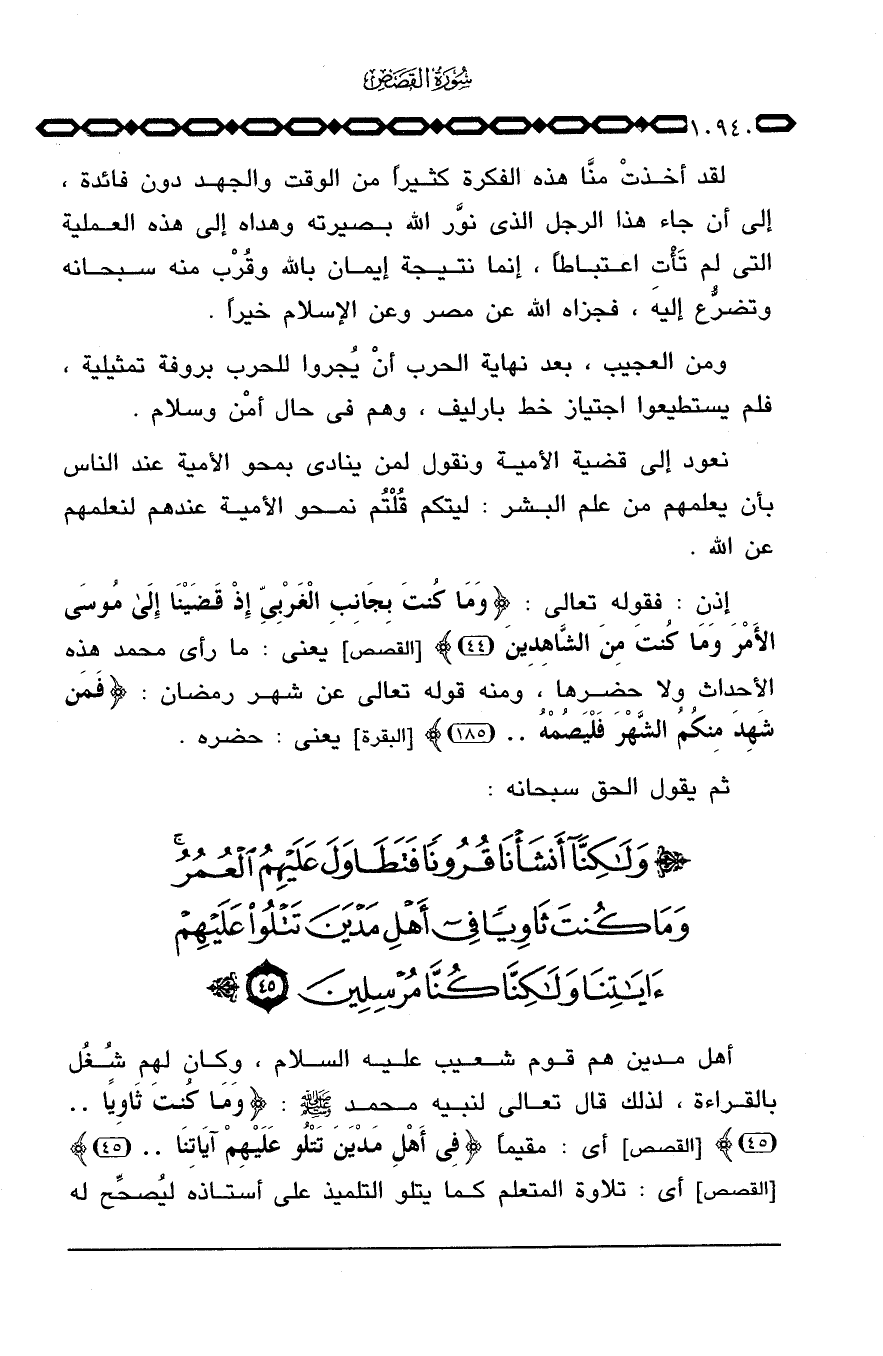 سُورَةُ القَصَصِ
١٠٩٤٠
لقد أخـذتْ منَّا هذه الفكرة كثيراً من الوقت والجهد دون فائدة ،
إلى أن جاء هذا الرجل الذى نوَّر الله بصيرته وهداه إلى هذه العملية
التى لم تَأْت اعتباطاً ، إنما نتيجة إيمان بالله وقُرْب منه سبحانه
وتضرُّع إليه ، فجزاه الله عن مصر وعن الإسلام خيراً .
ومن العجيب ، بعد نهاية الحرب أنْ يُجروا للحرب بروفة تمثيلية ،
فلم يستطيعوا اجتياز خط بارليف ، وهم فى حال أمْن وسلام .
نعود إلى قضية الأمية ونقول لمن ينادى بمحو الأمية عند الناس
بأن يعلمهم من علم البشر : ليتكم قُلْتُم نمحو الأمية عندهم لنعلمهم
عن الله .
إذن : فقوله تعالى : ﴿وَمَا كُنتَ بِجَانِبِ الْغَرْبِيِّ إِذْ قَضَيْنَا إِلَىٰ مُوسَى
الأَمْرَ وَمَا كُنتَ مِنَ الشَّاهِدِينَ (٤٤)﴾ [القصص] يعنى : ما رأى محمد هذه
الأحداث ولا حضرها ، ومنه قوله تعالى عن شهر رمضان : ﴿فَمَن
شَهِدَ مِنكُمُ الشَّهْرَ فَلْيَصُمْهُ .. (١٨٥)﴾ [البقرة] يعنى : حضره .
ثم يقول الحق سبحانه :
﴿وَلَٰكِنَّآ أَنشَأْنَا قُرُونًا فَتَطَاوَلَ عَلَيْهِمُ ٱلْعُمُرُ ۚ
وَمَا كُنتَ ثَاوِيًا فِىٓ أَهْلِ مَدْيَنَ تَتْلُوا۟ عَلَيْهِمْ
ءَايَٰتِنَا وَلَٰكِنَّا كُنَّا مُرْسِلِينَ ٤٥﴾
أهل مدين هم قوم شعيب عليه السلام ، وكان لهم شُغُل
بالقراءة ، لذلك قال تعالى لنبيه محمد ﷺ : ﴿وَمَا كُنتَ ثَاوِيًا ..
(٤٥)﴾ [القصص] أى : مقيماً ﴿فِي أَهْلِ مَدْيَنَ تَتْلُو عَلَيْهِمْ آيَاتِنَا .. (٤٥)﴾
[القصص] أى : تلاوة المتعلم كما يتلو التلميذ على أستاذه ليُصحِّح له